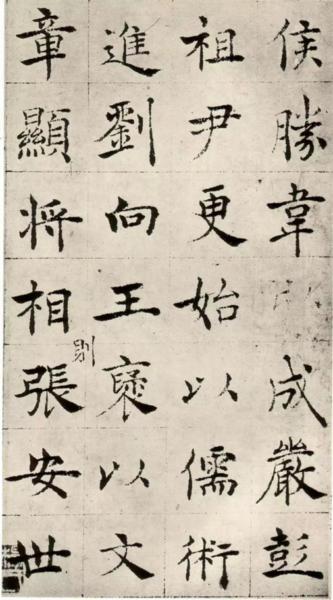 侯勝韋成嚴彭
祖尹更始以儒術
進劉向王褒以文
章顯将相則張安世